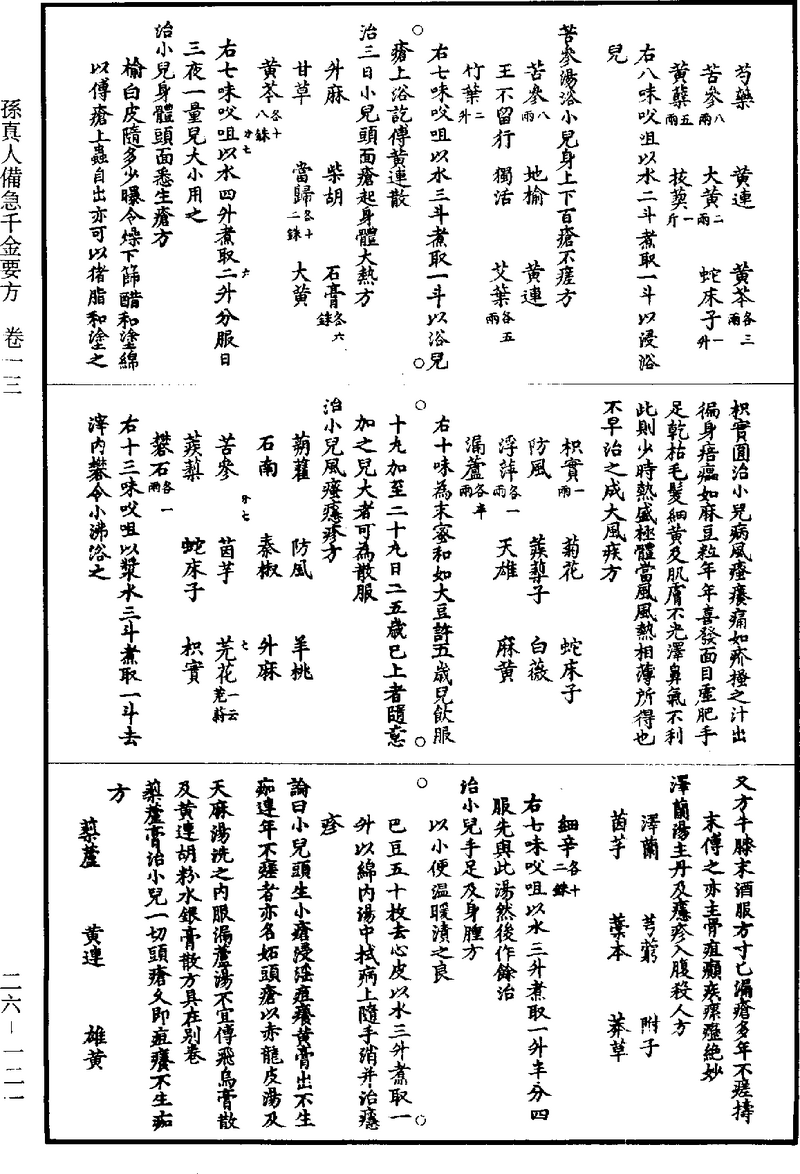 芍藥 黃連 黃芩各三兩
苦參八兩 大黃二兩 蛇床子一升
黃蘗五兩 菝葜一斤
右八味㕮咀以水二斗煮取一斗以浸浴
兒
苦參湯浴小兒身上下百瘡不瘥方
苦參八兩 地榆 黃連
王不留行 獨活 艾葉各五兩
竹葉二升
右七味㕮咀以水三斗煮取一斗以浴兒
瘡上浴訖傅黃連散
治三日小兒頭面瘡起身體大熱方
升麻 柴胡 石膏各六銖
甘草 當歸各十二銖 大黃
黃芩各十八銖
右七味㕮咀以水四升煮取二升分服日
三夜一量兒大小用之
治小兒身體頭面悉生瘡方
榆白皮隨多少曝令燥下篩醋和塗綿
以傅瘡上蟲自出亦可以猪脂和塗之
枳實圓治小兒病風瘙癢痛如疥搔之汁出
徧身㾦癗如麻豆粒年年喜發面目虛肥手
足乾枯毛髮細黃及肌膚不光澤鼻氣不利
此則少時熱盛極體當風風熱相薄所得也
不早治之成大風疾方
枳實一兩 菊花 蛇床子
防風 蒺藜子 白薇
浮萍各一兩 天雄 麻黃
漏蘆各半兩
右十味為末蜜和如大豆許五歲兒飲服
十九加至二十九日二五歲已上者隨意
加之兒大者可為散服
治小兒風瘙癮疹方
蒴藋 防風 羊桃
石南 秦椒 升麻
苦參 茵芋 芫花一云芫蔚
蒺藜 蛇床子 枳實
礬石各一兩
右十三味㕮咀以漿水三斗煮取一斗去
滓內礬令小沸浴之
又方牛膝末酒服方寸匕漏瘡多年不瘥擣
末傅之亦主骨疽癲疾瘰癧絕妙
澤蘭湯主丹及癮疹入腹殺人方
澤蘭 芎藭 附子
茵芋 藁本 莽草
細辛各十二銖
右七味㕮咀以水三升煮取一升半分四
服先與此湯然後作餘治
治小兒手足及身腫方
以小便溫暖漬之良
又
巴豆五十枚去心皮以水三升煮取一
升以綿內湯中拭病上隨手消并治癮
疹
論曰小兒頭生小瘡浸淫疽癢黃膏出不生
痂連年不瘥者亦名妬頭瘡以赤龍皮湯及
天麻湯洗之內服漏蘆湯不宜傅飛烏膏散
及黃連胡粉水銀膏散方具在別卷
藜蘆膏治小兒一切頭瘡久即疽癢不生痂
方
藜蘆 黃連 雄黃
孫真人備急千金要方 卷一三
二六-一二一